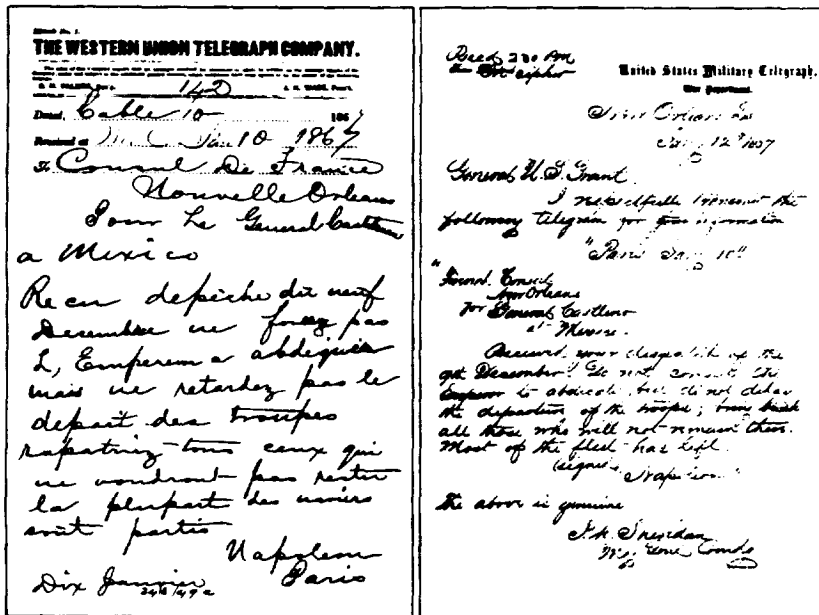 THE WESTERN UNION TELEGRAPH COMPANY.
142
Dated, Cable 10 186
Received at Jan 10 1867
To Consul De France
Nouvelle Orleans
Pour Le General Castelnau
a Mexico
Recu depiche du neuf
Decembre ne forcez pas
L, Empereur a abdiquer
mais ne retardez pas le
depart des troupes
rapatriez tous ceux qui
ne voudront pas rester
la plupart des navires
sont partis
Napoleon
Paris
Dix Janvier
Recd 230 PM
In cipher
United States Military Telegraph.
War Department.
New Orleans La
Jany 12th 1867
General U.S. Grant
I respectfully transmit the
following telegram for your information
"Paris Jany 10th
"French Consul
New Orleans
for General Castlenau
at Mexico.
Received your despatch of the
9th December. Do not compel the
Emperor to abdicate, but do not delay
the departure of the troops; bring back
all those who will not remain there.
Most of the fleet has left.
(signed) Napoleon"
The above is genuine
P.H. Sheridan
Maj Genl Comdg